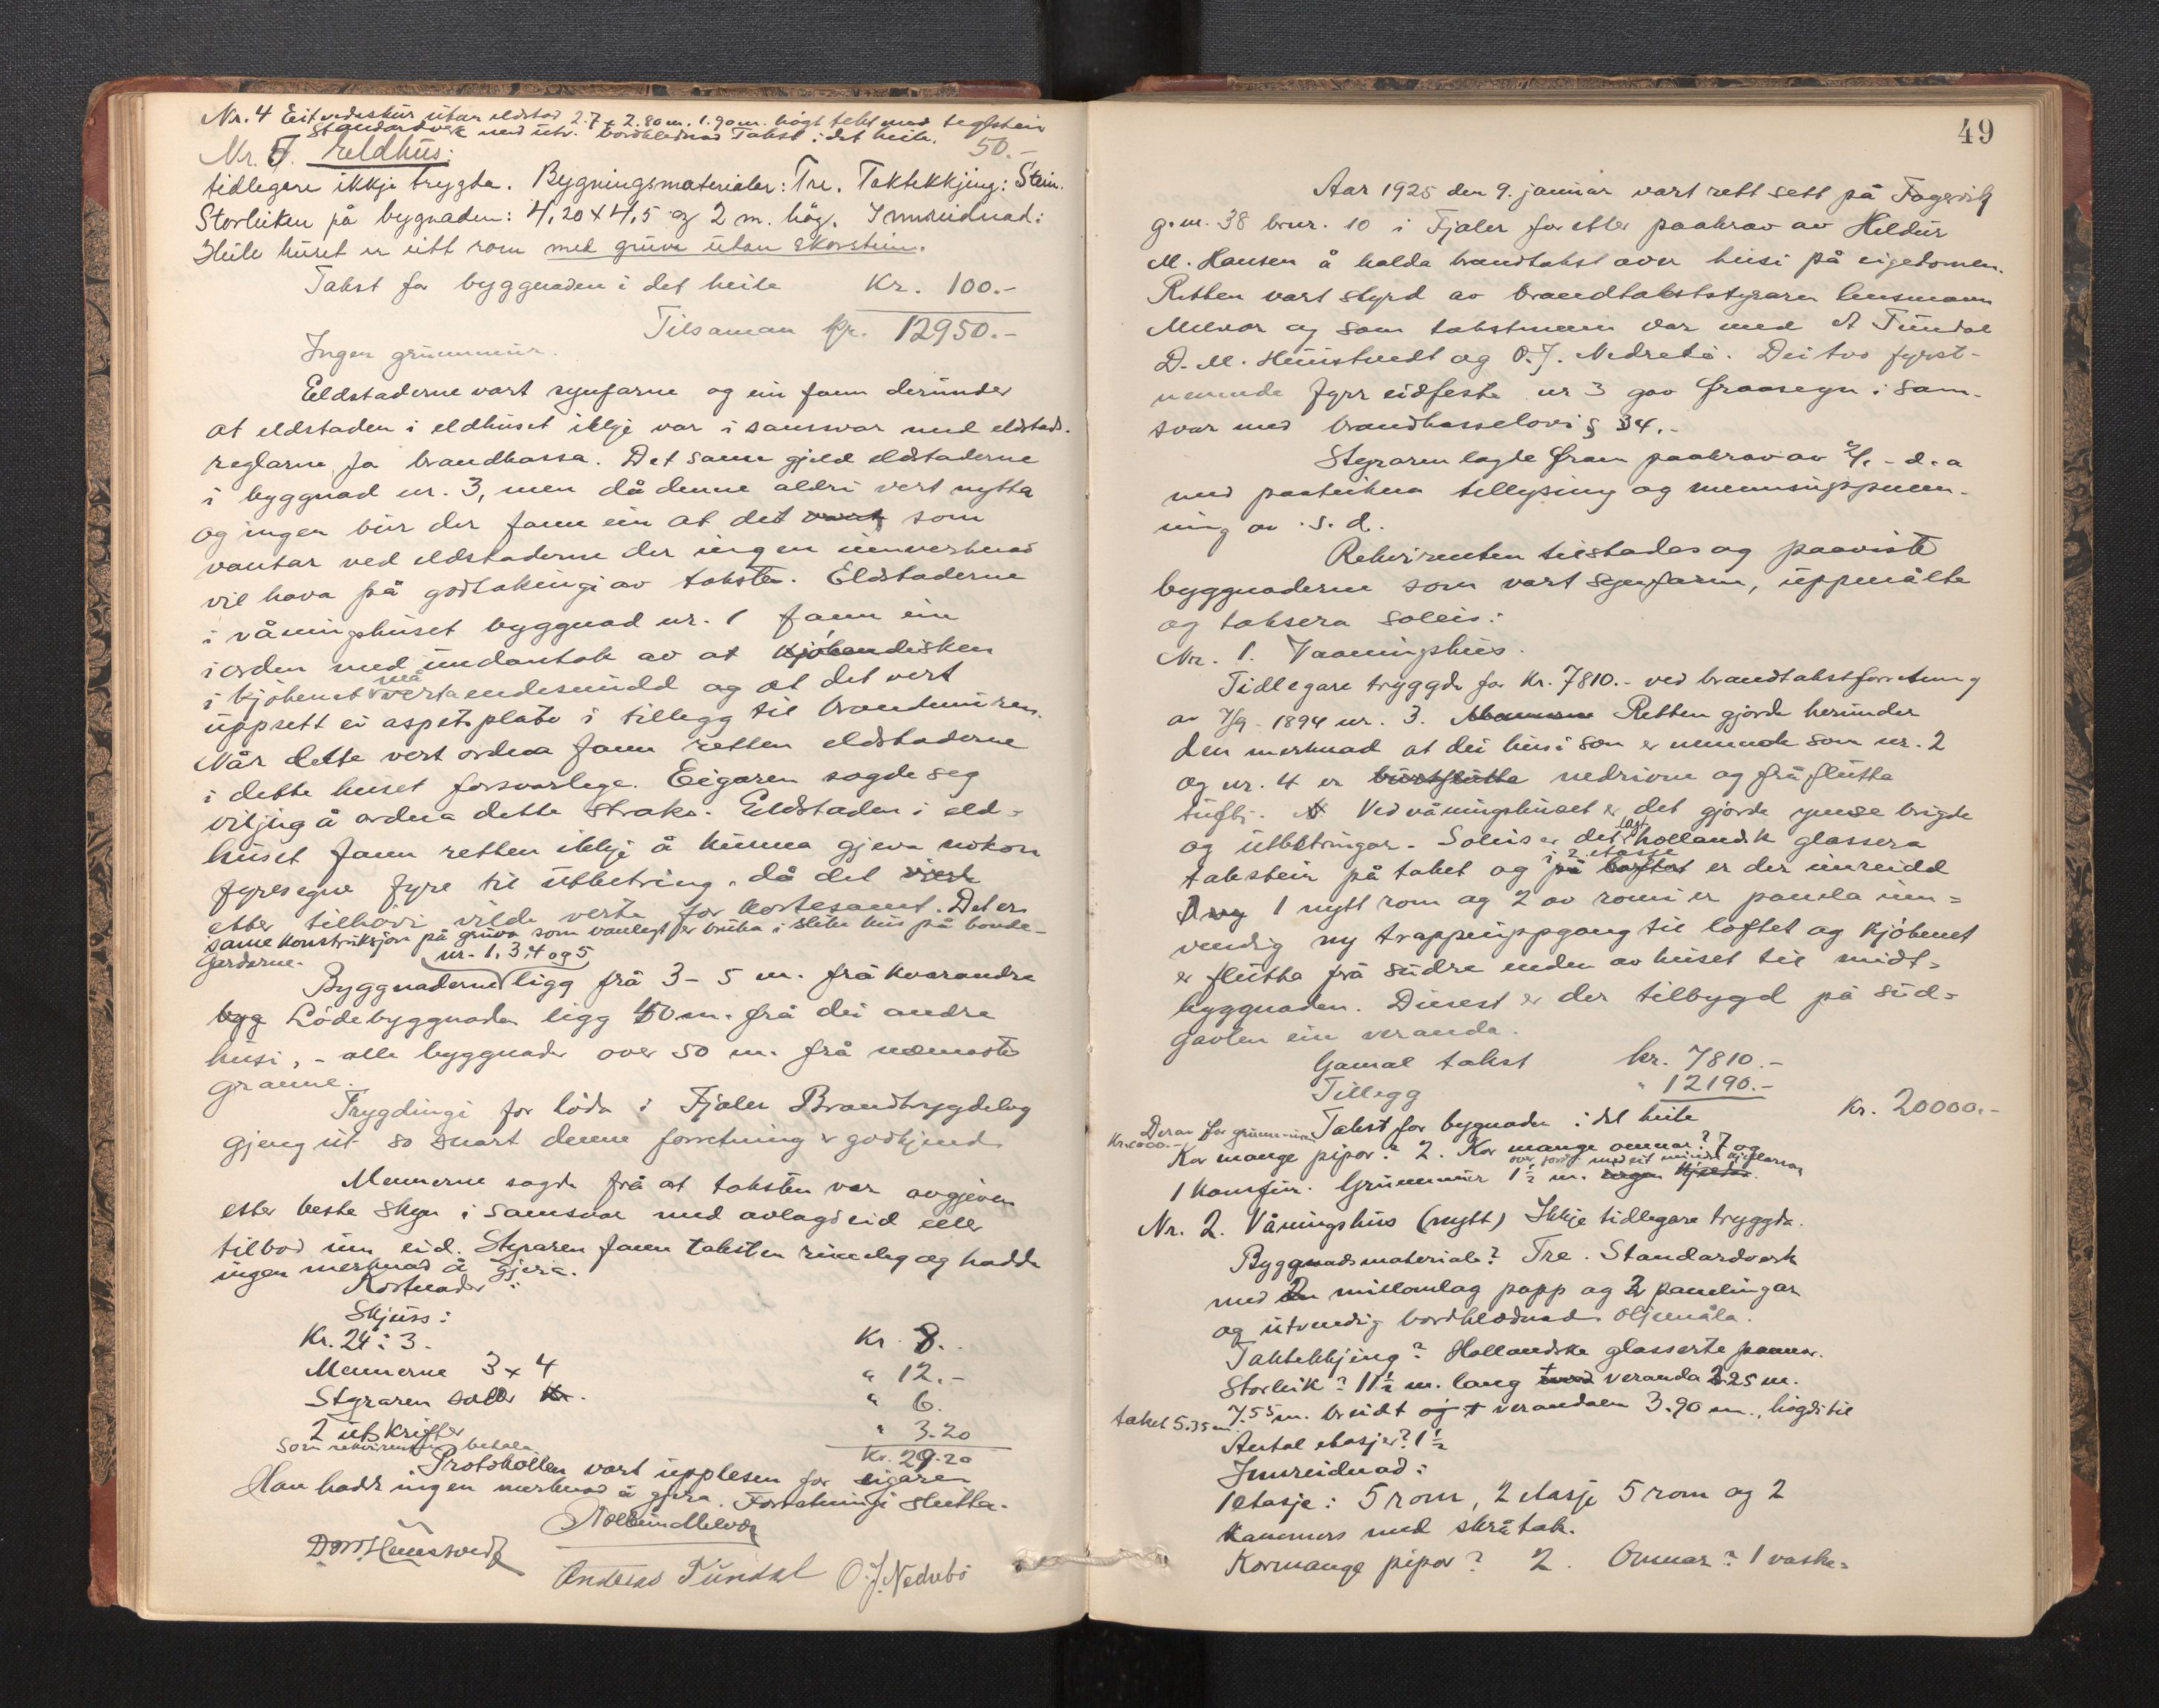 Nr. 4 Eit vedaskur utan eldstad 2.7 x 2.80 m. 1.90 m. högt tekt med teglstein
Standardverk med utv. bordklednad Takst i det heile. 50.-
Nr. 5. Eeldhus:
tidlegare ikkje trygda. Bygningsmaterialer: Tre. Taktekkjing: Stein.
Storleiken på bygnaden: 4,20 x 4,5 og 2 m. hög. Innreidnad:
Heile huset er eitt rom med gruve utan skorstein.
Takst for byggnaden i det heile Kr. 100.-
Tilsaman kr. 12950.-
Ingen grunnmur.
Eeldstaderne vart synfarne og ein fann derunder
at eldstaden i eldhuset ikkje var i samsvar med eldstads-
reglarne fo brandkassa. Det same gjeld eldstaderne
i byggnad nr. 3, men då denne aldri vert nytta
og ingen bur der fann ein at det vart som
vantar ved eldstaderne der ingen innverknad
vil hava på godtakingi av taksten. Eldstaderne
i våningshuset byggnad nr. 1 fann ein
i orden med undantak av at kjökendisken
i kjökenet må verta endesnudd og at det vert
uppsett ei aspetplate i tillegg til brandmuren.
Når dette vert ordna fann retten eldstaderne
i dette huset forsvarlege. Eigaren sagde seg
viljug å ordna dette straks. Eldstaden i eld-
huset fann retten ikkje å kunna gjeva nokon
fyresegn fyre til utbetring, då det vert
etter tilhövi vilde verta for kostesamt. Det er
same konstruksjon på gruva som vanlegt er bruka i slike hus på bonde-
gardarne.
nr. 1, 3, 4 og 5
Byggnaderne ligg frå 3 - 5 m. frå kvarandre
byg Lödebyggnaden ligg 40 m. frå dei andre
husi, - alle byggnader over 50 m. frå næmaste
granne.
Trygdingi for löda i Fjaler Brandtrygdelag
gjeng ut so snart denne forretning er godkjend
Mennerne sagde frå at taksten var avgjeven
etter beste skyn i samsvar med avlagd eid eller
tilbod um eid. Styraren fann taksten rimeleg og hadde
ingen merknad å gjera.
Kostnader:
Skjuss:
Kr. 24 : 3. Kr. 8.
Mennerne 3 x 4 " 12.-
Styraren " 6.
2 utskrifter " 3.20
Som rekvirenten betala Kr. 29.20
Protokollen vart upplesen for eigaren
Han hadde ingen merknad å gjera. Forretningi slutta.
D M Hunstvedt
Andreas Tundal O. J. Nedrebö
49
Aar 1925 den 9. januar vart rett sett på Fagervik
g.nr. 38 brnr. 10 i Fjaler for etter paakrav av Heldur
M. Hansen å halda brandtakst over husi på eigedomen.
Retten vart styrd av brandtakststyraren lensmann
Melvær og som takstmenn var med A Tundal
D. M. Hunstvedt og O. J. Nedrebö. Dei tvo fyrst-
nemnde fyrr eidfeste nr 3 gav fraasegn i sam-
svar med brandkasselovi § 34.-
Styraren lagde fram paakrav av 2/1 - d.a
med paateikna tillysing og mennsuppnem-
ning av s. d.
Rekvirenten tilstades og paaviste
byggnaderne som vart synfarne, uppmålte
og taksera soleis:
Nr. 1. Vaaningshus.
Tidlegare tryggde for Kr. 7810.- ved brandtakstforretning
av 7/9 - 1894 nr. 3. Retten gjorde herunder
den merknad at dei husi som er nemnde som nr. 2
og nr. 4 er burtflutte nedrivne og fråflutta
tufti. Ved våningshuset er det gjorde ymse brigde
og utbetringar. Soleis er det lagt hollandsk glassera
takstein på taket og i 2. etasje på loftet er der innreidd
1 nytt rom og 2 av romi er panela inn-
vendig ny trappeuppgang til loftet og kjökenet
er flutta frå südre enden av huset til midt-
byggnaden. Diesest er der tilbygd på süd-
gavlen ein veranda.
Gamal takst kr. 7810.-
Tillegg " 12190.-
Takst for bygnaden i det heile Kr. 20000.-
Derav for grunnmuren
Kr. 1000.-
Kor mange pipor? 2. Kor mange omnar? 7 og
1 komfur. Grunnmur 1½ m. over jordi med eit mindre kjellarrom ingen kjeldar.
Nr. 2. Våningshus (nytt) Ikkje tidlegare tryggda.
Byggnadsmateriale? Tre. Standardverk
med 2 millomlag papp og 2 panelingar
og utvendig bordklædnad oljemåla.
Taktekkjing? Hollandske glasserte pannor.
Storleik? 11½ m. lang + veranda 2.25 m.
7.55 m. breidt og + verandaen 3.90 m., högdi til
taket 5.35 m.
Antal etasjer? 1½
Innreidnad:
1 etasje: 5 rom, 2 etasje 5 rom og 2
kammers med skråtak.
Kormange pipor? 2. Omnar? 1 vaske-